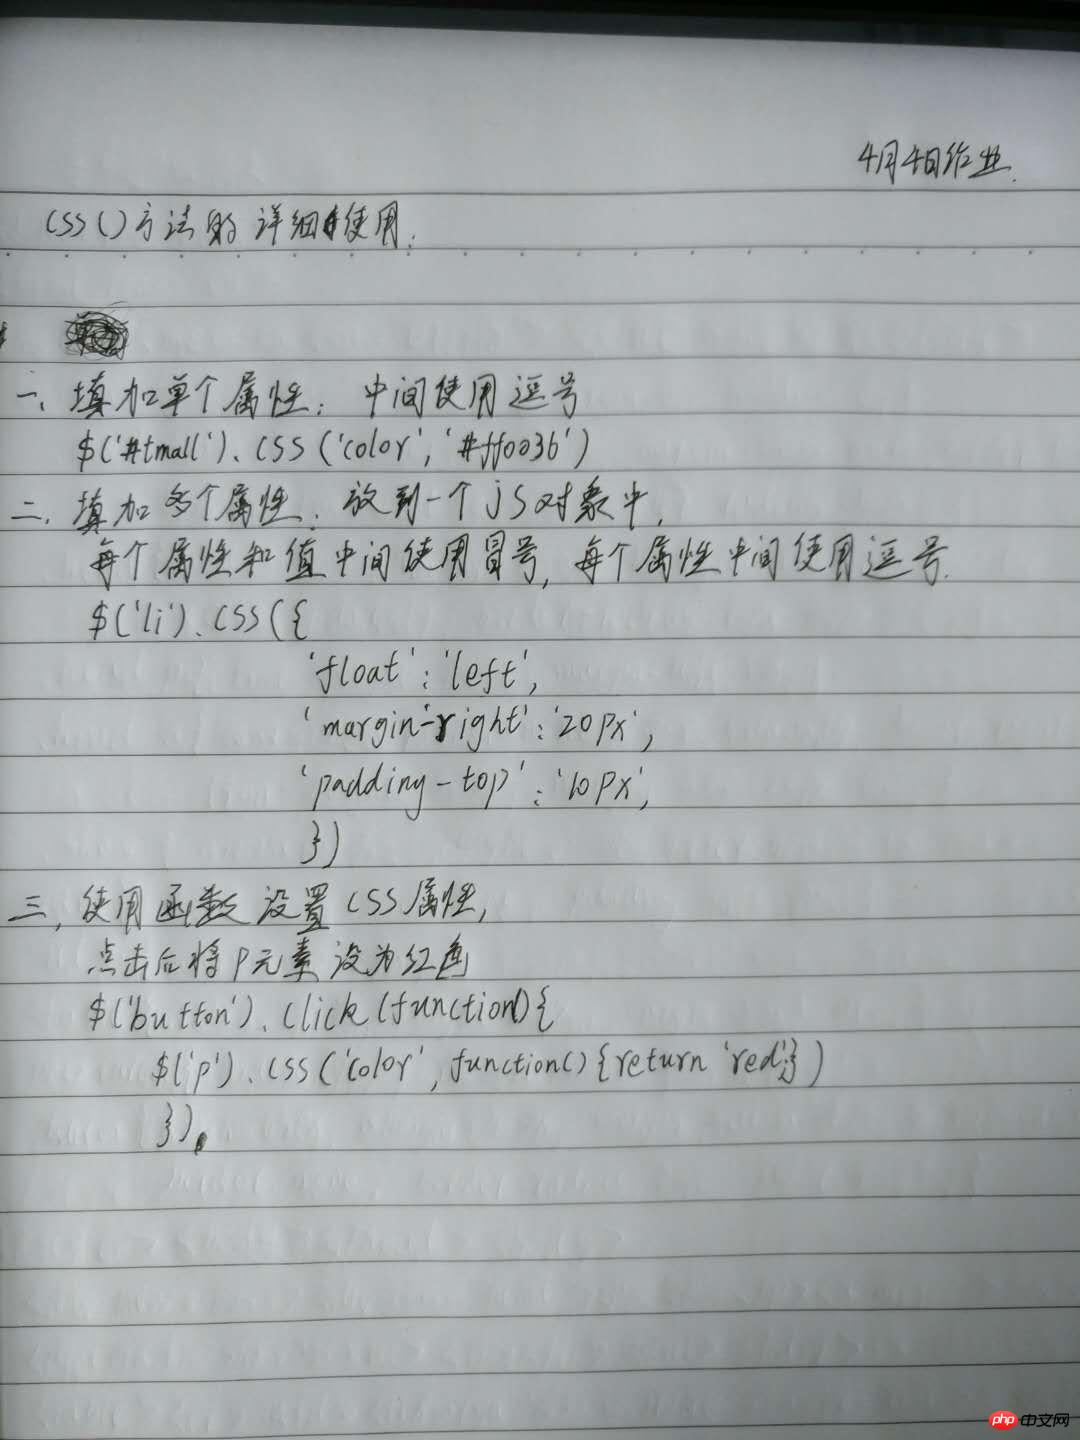 4月4日作业.
CSS()方法的详细使用:
一、填加单个属性: 中间使用逗号
$('#tmall').css('color','#ff0036')
二、填加多个属性: 放到一个js对象中,
每个属性和值中间使用冒号, 每个属性中间使用逗号.
$('li').css({
'float':'left',
'margin-right':'20px',
'padding-top':'10px',
})
三、使用函数设置CSS属性,
点击后将p元素设为红色
$('button').click(function(){
$('p').css('color',function(){return 'red';})
}).
php中文网